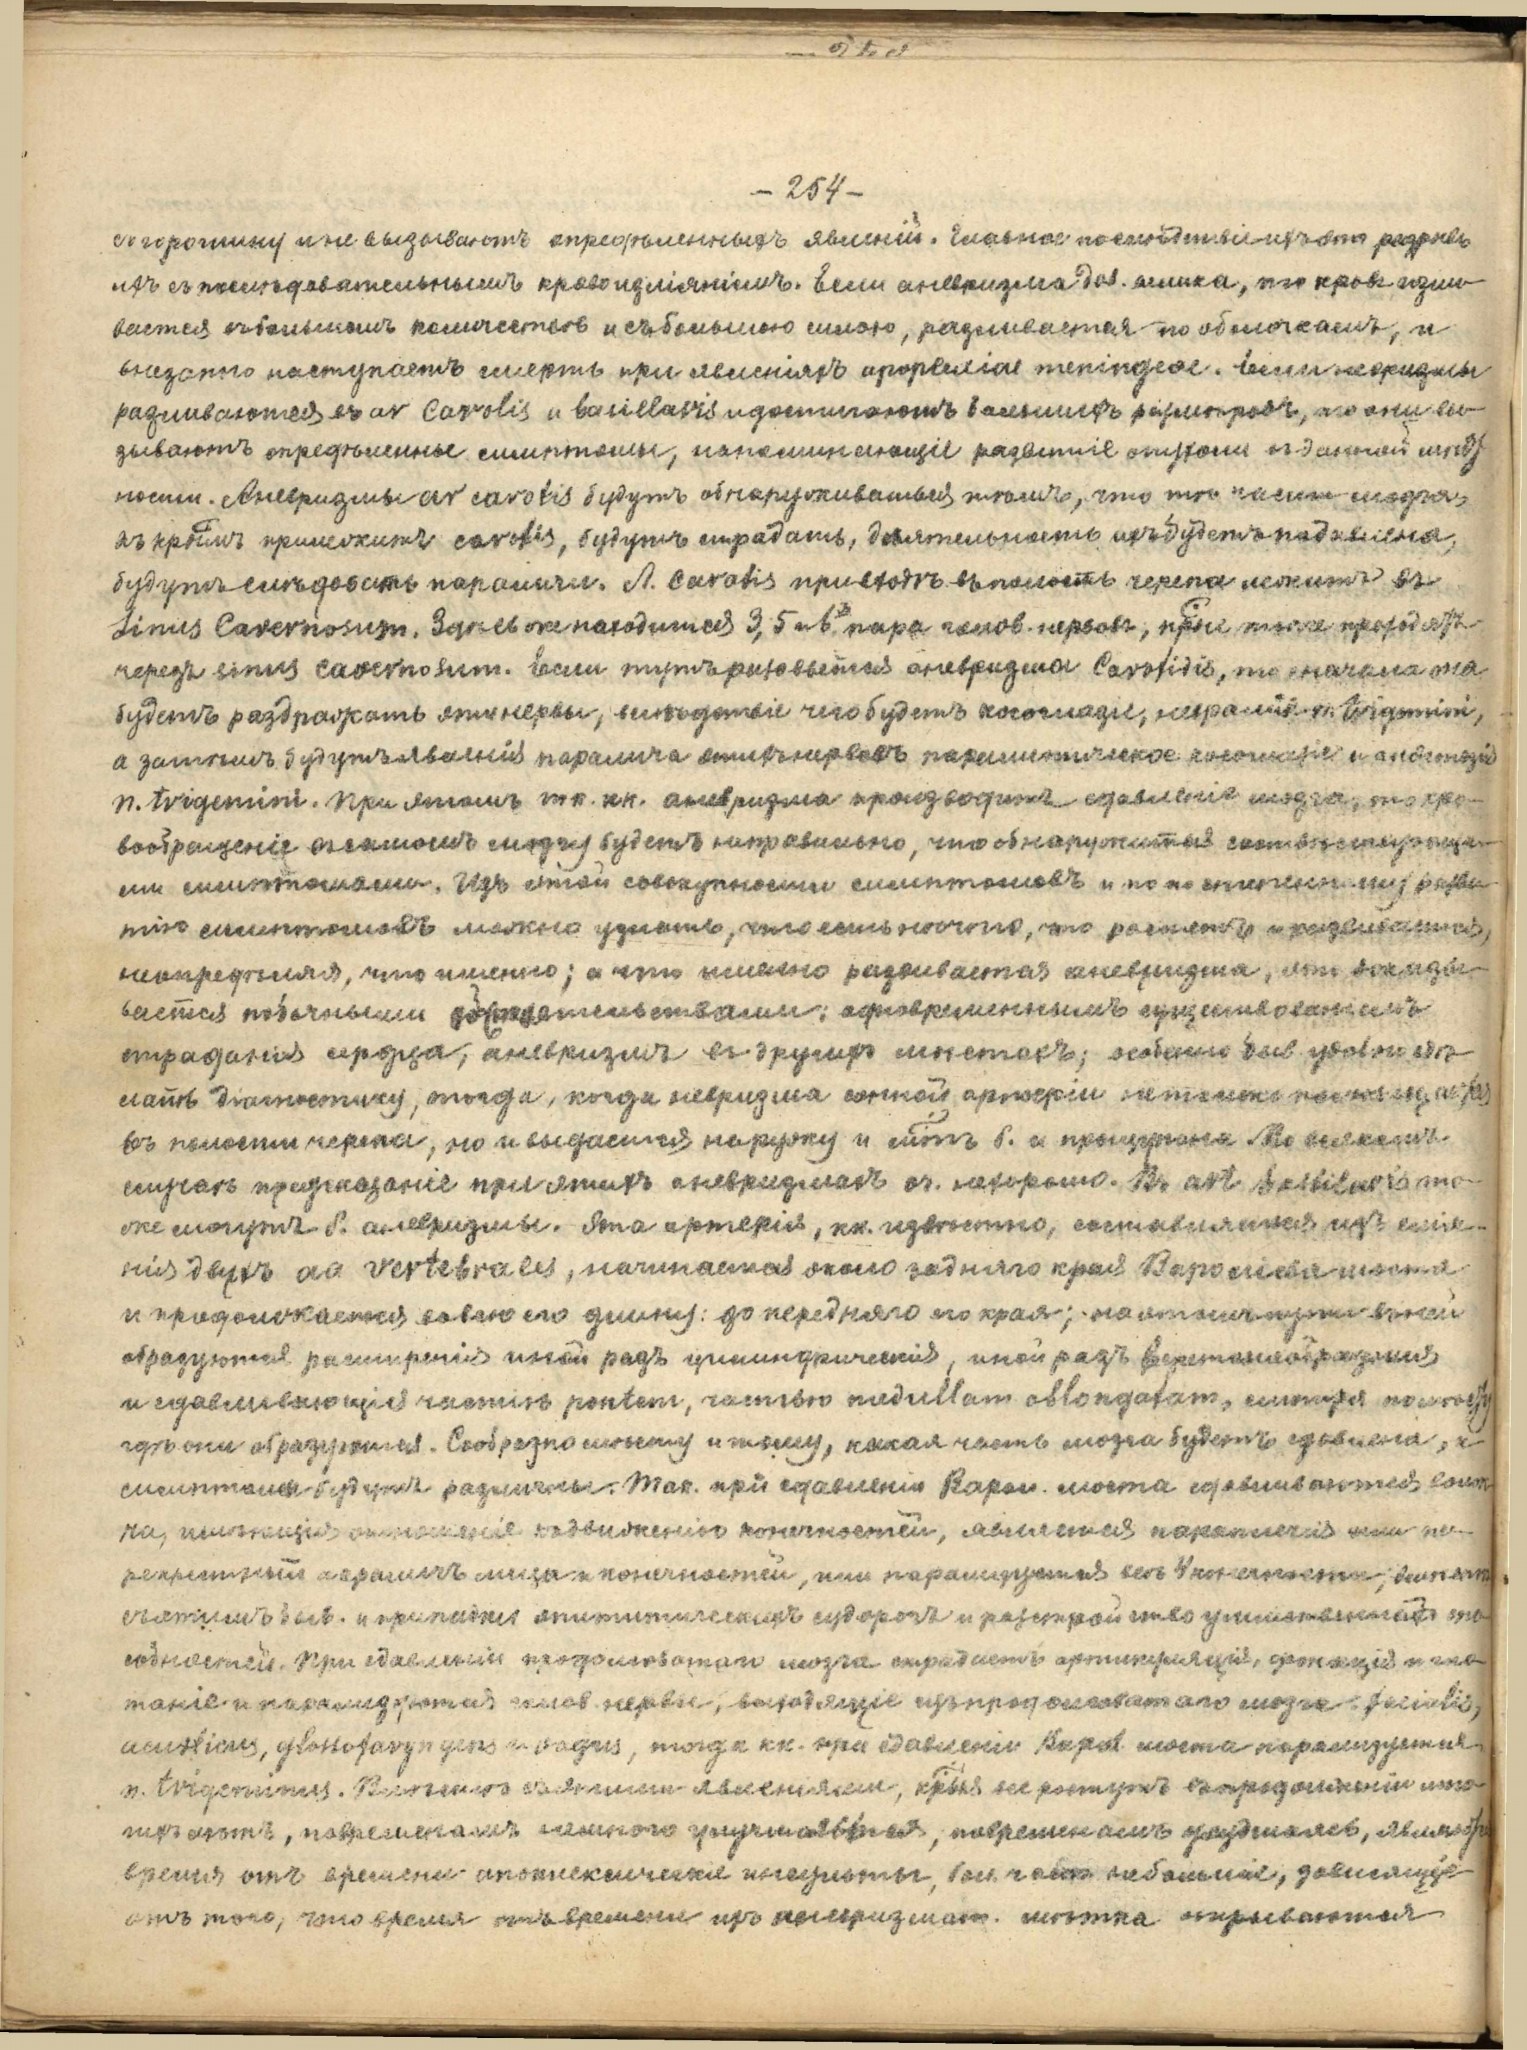 — 254 —
съ горошину и не вызываютъ определенныхъ явленій. Главное последствіе ихъ это разрывъ
ихъ съ последовательнымъ кровоизліяніемъ. Если аневризма дов. велика, то кровь изли-
вается въ большомъ количестве и съ большою силою, разливается по оболочкамъ, и
внезапно наступаетъ смерть при явленіяхъ apoplexiae meningeae. Если невризмы
развиваются въ ar Carotis и basillaris и достигаютъ большихъ размеровъ, то они вы-
зываютъ определенные симптомы, напоминающіе развитіе опухоли въ данной мест-
ности. Аневризмы ar carotis будутъ обнаруживаться темъ, что те части мозга,
къ крымъ прилежитъ carotis, будутъ страдать, деятельность ихъ будетъ подавлена,
будутъ следовать параличи. A. Carotis при входе въ полость черепа лежитъ въ
Sinus Cavernosum. Здесь же находится 3, 5 и 6 пара голов. нервовъ, крые также проходятъ
черезъ sinus cavernosum. Если тутъ разовьется аневризма Carotidis, то сначала она
будетъ раздражать эти нервы, вследствіе чего будетъ косоглазіе, невралгія n. trigemini,
а затемъ будутъ явленія паралича этихъ нервовъ паралитическое косоглазіе и анестезія
n. trigemini. При этомъ тк. кк. аневризма производитъ сдавленіе мозга, то кро-
вообращеніе въ самомъ мозгу будетъ неправильно, что обнаружится соответствующи-
ми симптомами. Изъ этой совокупности симптомовъ и по постепенному разви-
тію симптомовъ можно узнать, что есть нечто, что растетъ и развивается,
неопределяя, что именно; а что именно развивается аневризма, это доказы-
вается побочными обстоятельствами: одновременнымъ существованіемъ
страданія сердца, аневризмъ въ другихъ местахъ; особенно быв. удобно сде-
лать діагностику, тогда, когда невризма сонной артеріи не только помещается
въ полости черепа, но и выдается наружу и мтъ б. и прощупана. Во всякомъ
случае предсказаніе при этихъ аневризмахъ оч. нехорошо. Въ art basilaris то-
же могутъ б. аневризмы. Эта артерія, кк. известно, составляется изъ слія-
нія двухъ aa vertebrales, начинается около задняго края Вароліева моста
и продолжается во всю его длину: до передняго его края; на этомъ пути въ ней
образуются расширенія иной разъ цилиндрическія, иной разъ веретенообразныя
и сдавливающія частью pontem, частью medullam oblongatam, смотря по месту
где они образуются. Сообразно месту и тому, какая часть мозга будетъ сдавлена, и
симптомы будутъ различны. Так. при сдавленіи Варол. моста сдавливаются волок-
на, имеющія отношеніе къ движенію конечностей, является параплегія или пе-
рекрестный параличъ лица и конечностей, или парализуются все 4 конечности; вместе
съ этимъ быв. и припадки эпилептическихъ судорогъ и разстройство умственныхъ спо-
собностей. При сдавленіи продолговатаго мозга страдаетъ артикуляція, фонація и гло-
таніе и парализуются голов. нервы, выходящіе изъ продолговатаго мозга: facialis,
acusticus, glossofaryngeus и vagus, тогда кк. при сдавленіи Варол. моста парализуется
n. trigeminus. Вместе съ этими явленіями, крыя не ростутъ въ продолженіи мно-
гихъ летъ, по временамъ немного улучшаясь, по временамъ ухудшаясь, являются
время отъ времени апоплексическіе инсульты, больш. част небольшіе, зависящіе
отъ того, что время отъ времени изъ аневризмат. мешка открываются